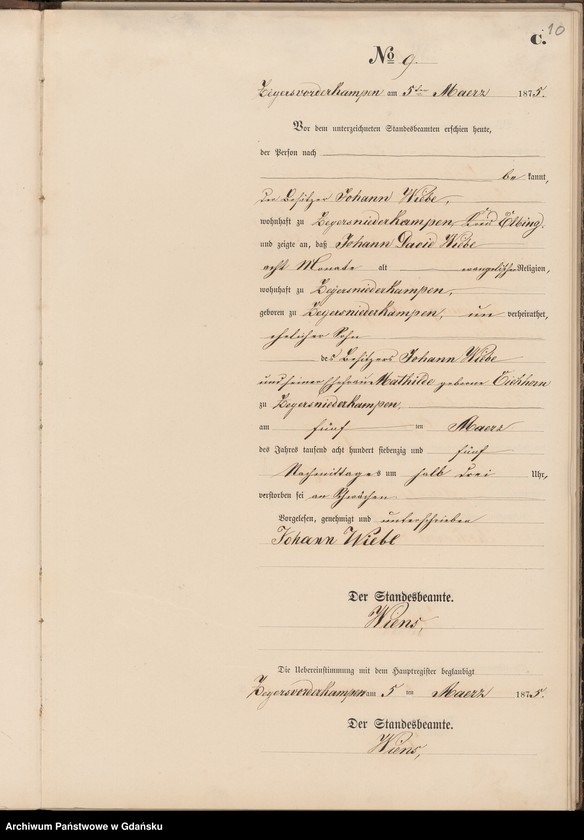 10
C.
No 9.
Zeyersvorderkampen am 5ten Maerz 1875.
Vor dem unterzeichneten Standesbeamten erschien heute,
der Person nach
bekannt,
der Besitzer Johann Wiebe,
wohnhaft zu Zeyersniederkampen, Elbing.
und zeigte an, daß Johann David Wiebe
acht Monate alt evangelischer Religion,
wohnhaft zu Zeyersniederkampen,
geboren zu Zeyersniederkampen, unverheirathet,
ehelicher Sohn
des Besitzers Johann Wiebe
und seiner Ehefrau Mathilde geborene Eichhorn
zu Zeyersniederkampen,
am fünf ten Maerz
des Jahres tausend acht hundert siebenzig und fünf
Nachmittages um halb drei Uhr,
verstorben sei an Schwächen
Vorgelesen, genehmigt und unterschrieben
Johann Wiebe
Der Standesbeamte.
Wiens,
Die Uebereinstimmung mit dem Hauptregister beglaubigt
Zeyersvorderkampen am 5 ten Maerz 1875.
Der Standesbeamte.
Wiens,
Archiwum Państwowe w Gdańsku